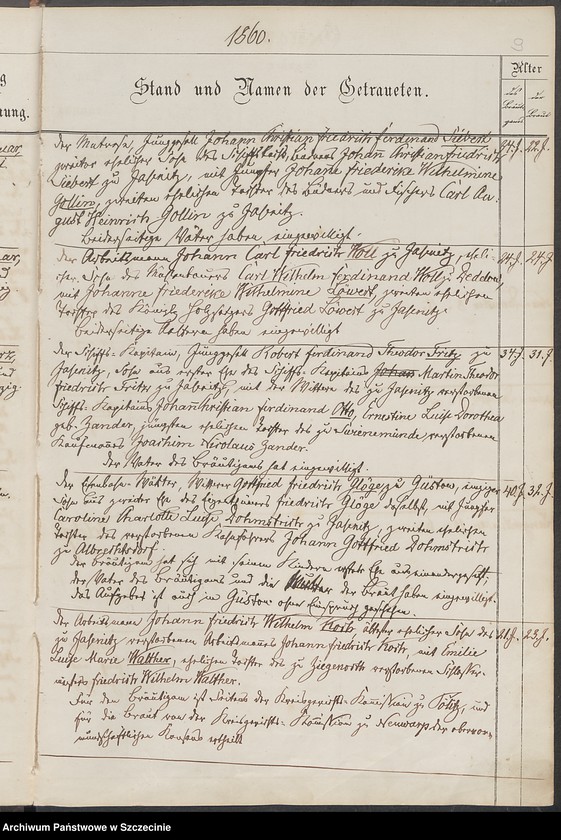 1860.
9
Stand und Namen der Getraueten.
Alter
des Bräutigams
der Braut
Der Matrose, Junggesell Johann Christian Friedrich Ferdinand Siebert, 24 J. 22 J.
zweiter ehelicher Sohn des Johan Christian Friedrich
Siebert zu Jasenitz, mit Jungfer Johanne Friedericke Wilhelmine
Gollin, zweiten ehelichen Tochter des Büdners und Fischers Carl Au-
gust Heinrich Gollin zu Jasenitz.
Beiderseitige Väter haben eingewilligt.
Der Arbeitsmann Johann Carl Friedrich Woll zu Jasenitz, eheli- 24 J. 24 J.
cher Sohn des Carl Wilhelm Ferdinand Woll zu
mit Johanne Friedericke Wilhelmine Löwert, zweiten ehelichen
Tochter des Königl. Holzsetzers Gottfried Löwert zu Jasenitz.
Beiderseitige Aeltern haben eingewilligt
Der Schiffs-Kapitain, Junggesell Robert Ferdinand Theodor Fritz zu 34 J. 31 J.
Jasenitz, Sohn aus erster Ehe des Schiffs-Kapitains Martin Theodor
Friedrich Fritz zu Jasenitz, mit der Wittwe des zu Jasenitz verstorbenen
Schiffs-Kapitains Johan Christian Ferdinand Otto, Ernestine Luise Dorothea
geb. Zander, jüngsten ehelichen Tochter des zu Swienemünde verstorbenen
Kaufmanns Joachim Nicolaus Zander.
Der Vater des Bräutigams hat eingewilligt.
Der Eisenbahn-Wärter, Wittwer Gottfried Friedrich Glöge zu Güstow, einziger 40 J. 32 J.
Sohn aus zweiter Ehe des Eigenthümers Friedrich Glöge daselbst, mit Jungfer
Caroline Charlotte Luise Dohmstrich zu Jasenitz, zweiten ehelichen
Tochter des verstorbenen Johann Gottfried Dohmstrich
zu Albrechtsdorf.
Der Bräutigam hat sich mit seinen Kindern erster Ehe auseinandergesetzt.
Der Vater des Bräutigams und die Mutter der Braut haben eingewilligt.
Das Aufgebot ist auch in Güstow ohne Einspruch geschehen.
Der Arbeitsmann Johann Friedrich Wilhelm Koch, ältester ehelicher Sohn des 23 J.
zu Jasenitz verstorbenen Arbeitsmannes Johann Friedrich Koch, mit Emilie
Luise Marie Walther, ehelichen Tochter des zu Ziegenorth verstorbenen Schlosser-
meisters Friedrich Wilhelm Walther.
Für den Bräutigam ist Seitens der Kreisgerichts-Kommission zu Pölitz, und
für die Braut von der Kreisgerichts-Kommission zu Neuwarp der obervor-
mundschaftliche Konsens ertheilt
Archiwum Państwowe w Szczecinie